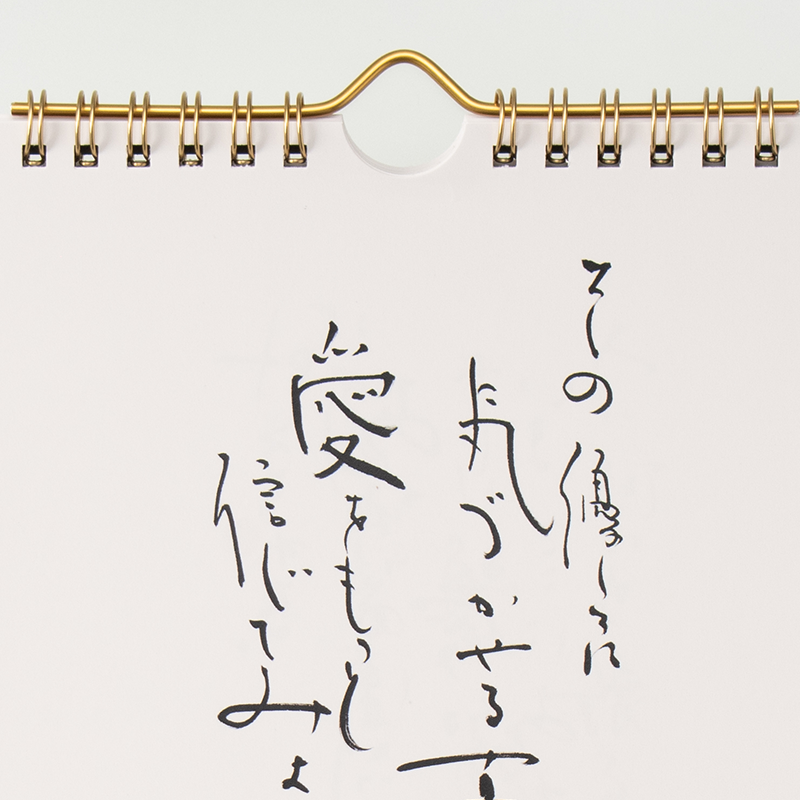 その優しさに
気づかせる
愛をもっと
信じてみよ